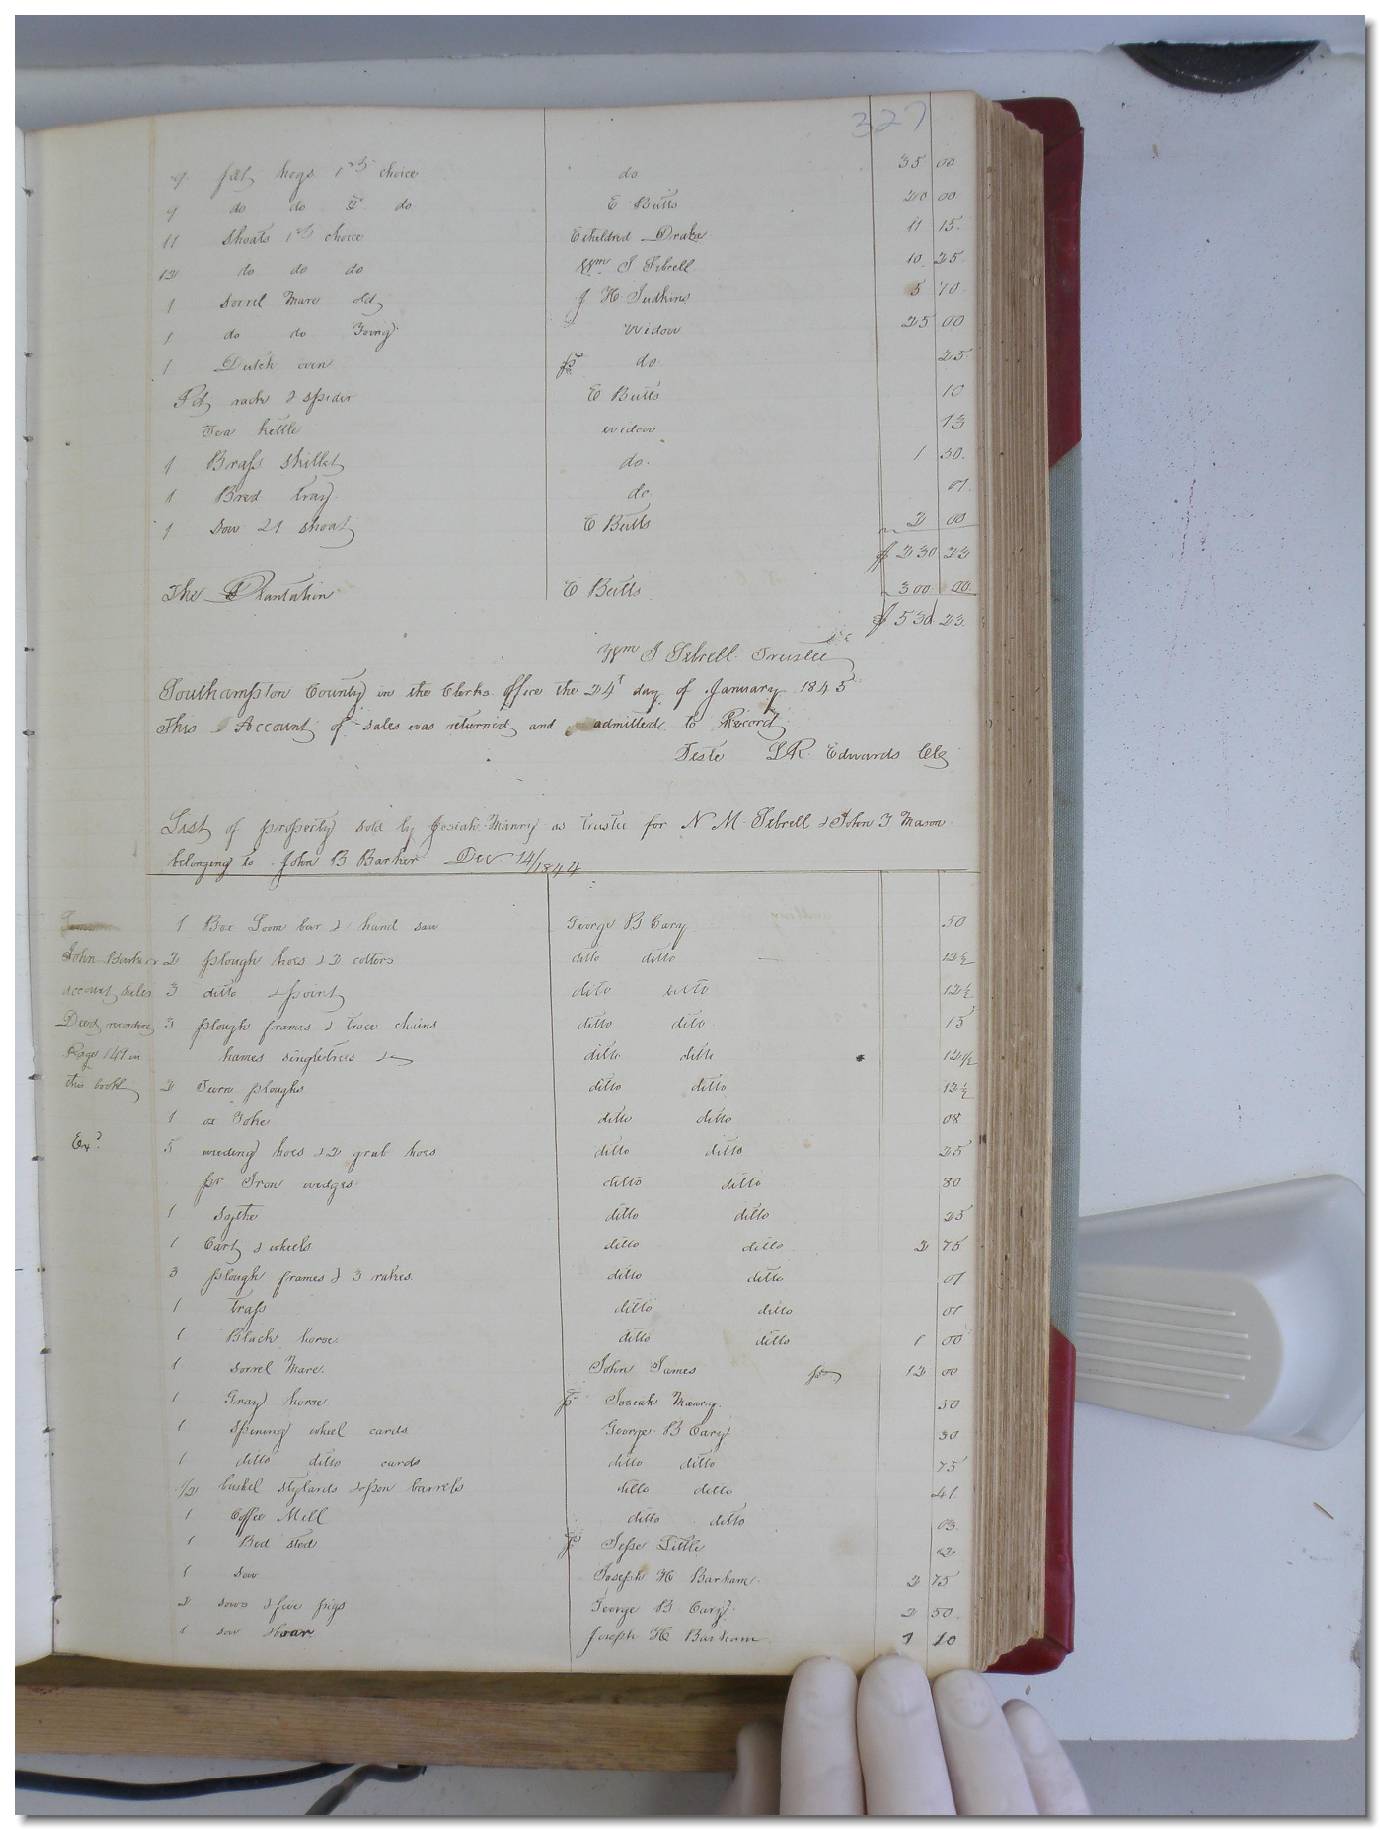 327
9 fat hogs 1st choice do 35 00
9 do do 2d do E Butts 20 00
11 Shoats 1st choice Etheldred Drake 11 15
12 do do do Wm J Sebrell 10 25
1 Sorrel Mare old J H Judkins 5 70
1 do do Young widow 25 00
1 Dutch oven do 25
Pot rack & spider E Butts 10
Tea kettle widow 13
1 Brass skillet do 1 50
1 Bred tray do 01
1 Sow & 1 shoat E Butts 2 00
$ 230 23
The Plantation E Butts 300 00
$ 530 23
Wm J Sebrell Trustee &c
Southampton County in the Clerks office the 24t day of January 1845
This Account of sales was returned and admitted to Record
Teste L R Edwards Clk
List of property sold by Josiah Manry as trustee for N M Sebrell & John T Mason
belonging to John B Barker Dec 14/1844
1 Box Loom bar & hand saw George B Cary 50
John Barker 2 plough hoes & 2 colters ditto ditto 12½
account sales 3 ditto & point ditto ditto 12½
Deed recorded 3 plough frames & trace chains ditto ditto 15
Page 141 in hames singletrees & ditto ditto 12½
this book 2 Turn ploughs ditto ditto 12½
1 ox Yoke ditto ditto 08
Exd 5 weeding hoes & 2 grub hoes ditto ditto 25
pr Iron wedges ditto ditto 30
1 Sythe ditto ditto 25
1 Cart & wheels ditto ditto 2 75
3 plough frames & 3 rakes ditto ditto 01
1 ditto ditto 01
1 Black horse ditto ditto 1 00
1 Sorrel Mare John James 12 00
1 Gray horse Josiah Manry 50
1 Spining wheel cards George B Cary 30
1 ditto ditto cards ditto ditto 75
1/2 bushel stylards & open barrels ditto ditto 41
1 Coffee Mill ditto ditto 03
1 Bed sted Jesse Little 2
1 Sow Joseph H Barham 2 75
2 sows & five pigs George B Cary 2 50
1 sow Joseph H Barham 1 10